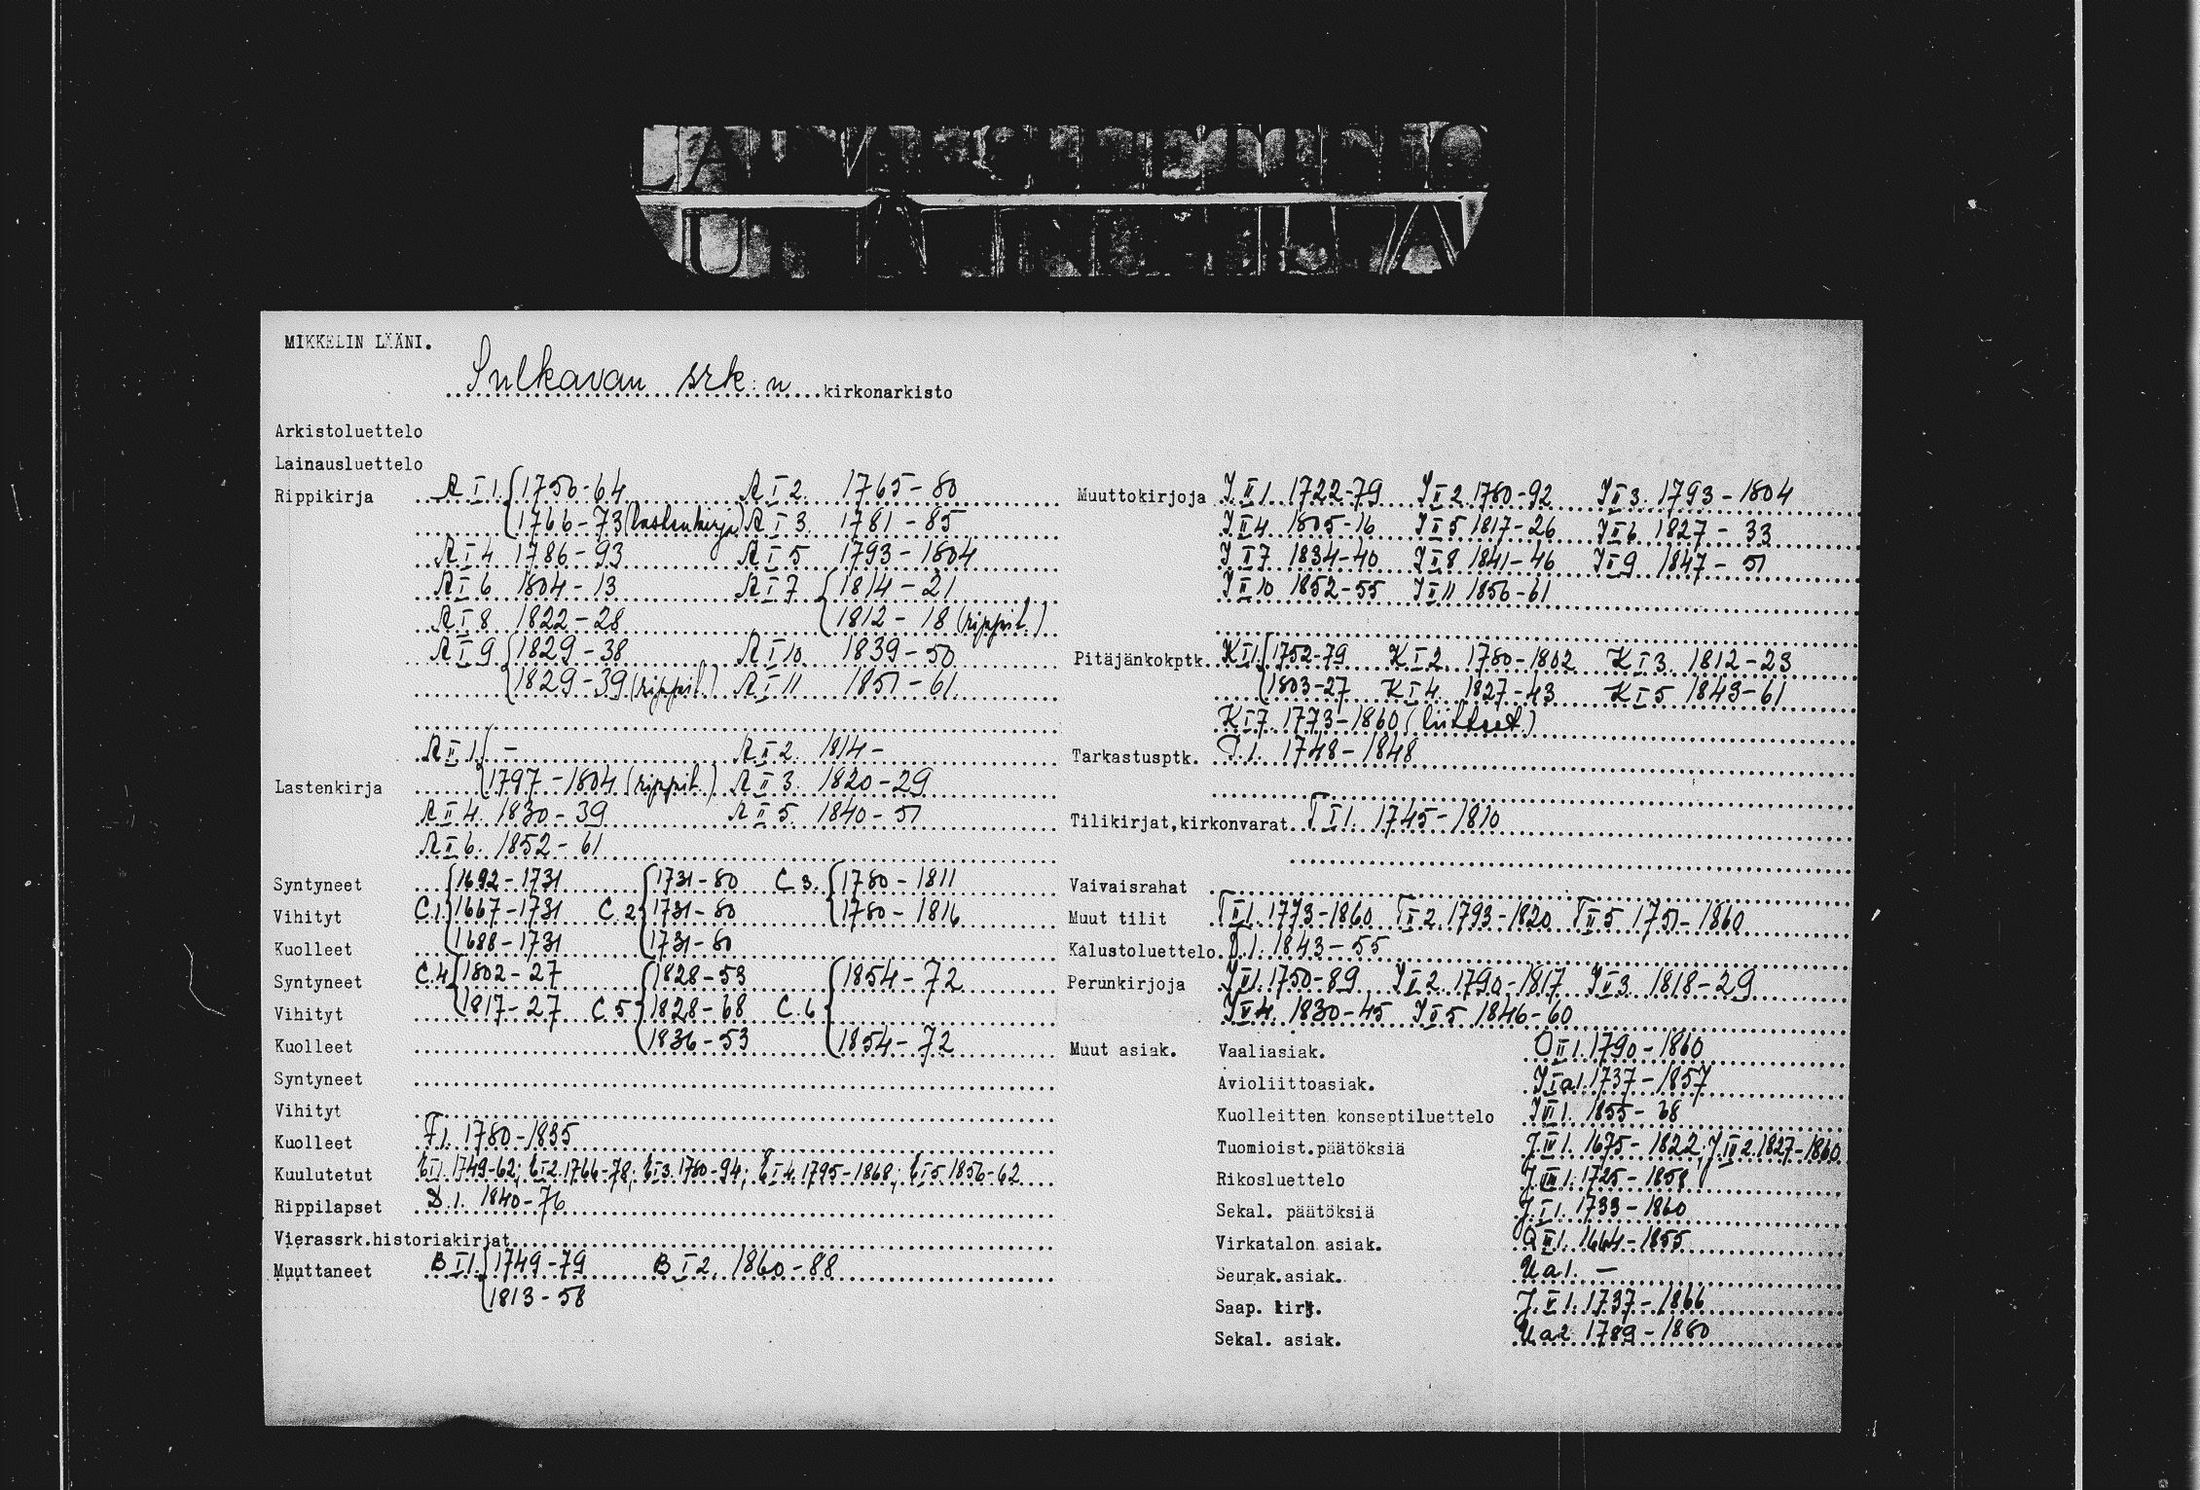 MIKKELIN LÄÄNI.
Sulkavan srk:n kirkonarkisto
Arkistoluettelo
Lainausluettelo
Rippikirja A I 1. 1750-64 A I 2. 1765-80
1766-73 (lastenkirja) A I 3. 1781-85
A I 4 1786-93 A I 5 1793-1804
A I 6 1804-13 A I 7 1814-21
A I 8 1822-28 1812-18 (rippil.)
A I 9 1829-38 A I 10. 1839-50
1829-39 (rippil.) A I 11 1851-61
A II 1. - A II 2. 1814-
Lastenkirja 1797-1804 (rippil.) A II 3. 1820-29
A II 4. 1830-39 A II 5. 1840-51
A II 6. 1852-61
Syntyneet 1692-1731 1731-80 C. 3. 1780-1811
Vihityt C.1. 1667-1731 C. 2 1731-80 1780-1816
Kuolleet 1688-1731 1731-80
Syntyneet C.4 1802-27 1828-53 1854-72
Vihityt 1817-27 C 5 1828-68 C. 6
Kuolleet 1836-53 1854-72
Syntyneet
Vihityt
Kuolleet F1. 1780-1835
Kuulutetut E I 1. 1749-62; E I 2. 1766-78; E I 3. 1780-94; E I 4. 1795-1868; E I 5. 1856-62
Rippilapset D.1. 1840-76
Vierassrk.historiakirjat
Muuttaneet B I 1. 1749-79 B I 2. 1860-88
1813-58
Muuttokirjoja I II 1. 1722-79 I II 2. 1780-92 I II 3. 1793-1804
I II 4 1805-16 I II 5 1817-26 I II 6 1827-33
I II 7 1834-40 I II 8 1841-46 I II 9 1847-51
I II 10 1852-55 I II 11 1856-61
Pitäjänkokptk. K I 1. 1752-79 K I 2. 1780-1802 K I 3. 1812-23
1803-27 K I 4. 1827-43 K I 5 1843-61
K I 7. 1773-1860 (liitteet)
Tarkastusptk. 1. 1748-1848
Tilikirjat,kirkonvarat T I 1. 1745-1810
Vaivaisrahat
Muut tilit T II 1. 1773-1860 T II 2. 1793-1820 T II 5 1751-1860
Kalustoluettelo 1. 1843-55
Perunkirjoja 1750-89 1790-1817 1818-29
1830-45 1846-60
Muut asiak. Vaaliasiak. O II 1. 1790-1860
Avioliittoasiak. 1737-1857
Kuolleitten konseptiluettelo 1855-68
Tuomioist.päätöksiä 1675-1822; 1827-1860
Rikosluettelo 1725-1858
Sekal. päätöksiä J I 1. 1733-1860
Virkatalon asiak. 1664-1855
Seurak.asiak. U a 1. -
Saap. kirj. 1737-1866
Sekal. asiak. U a 2 1789-1860